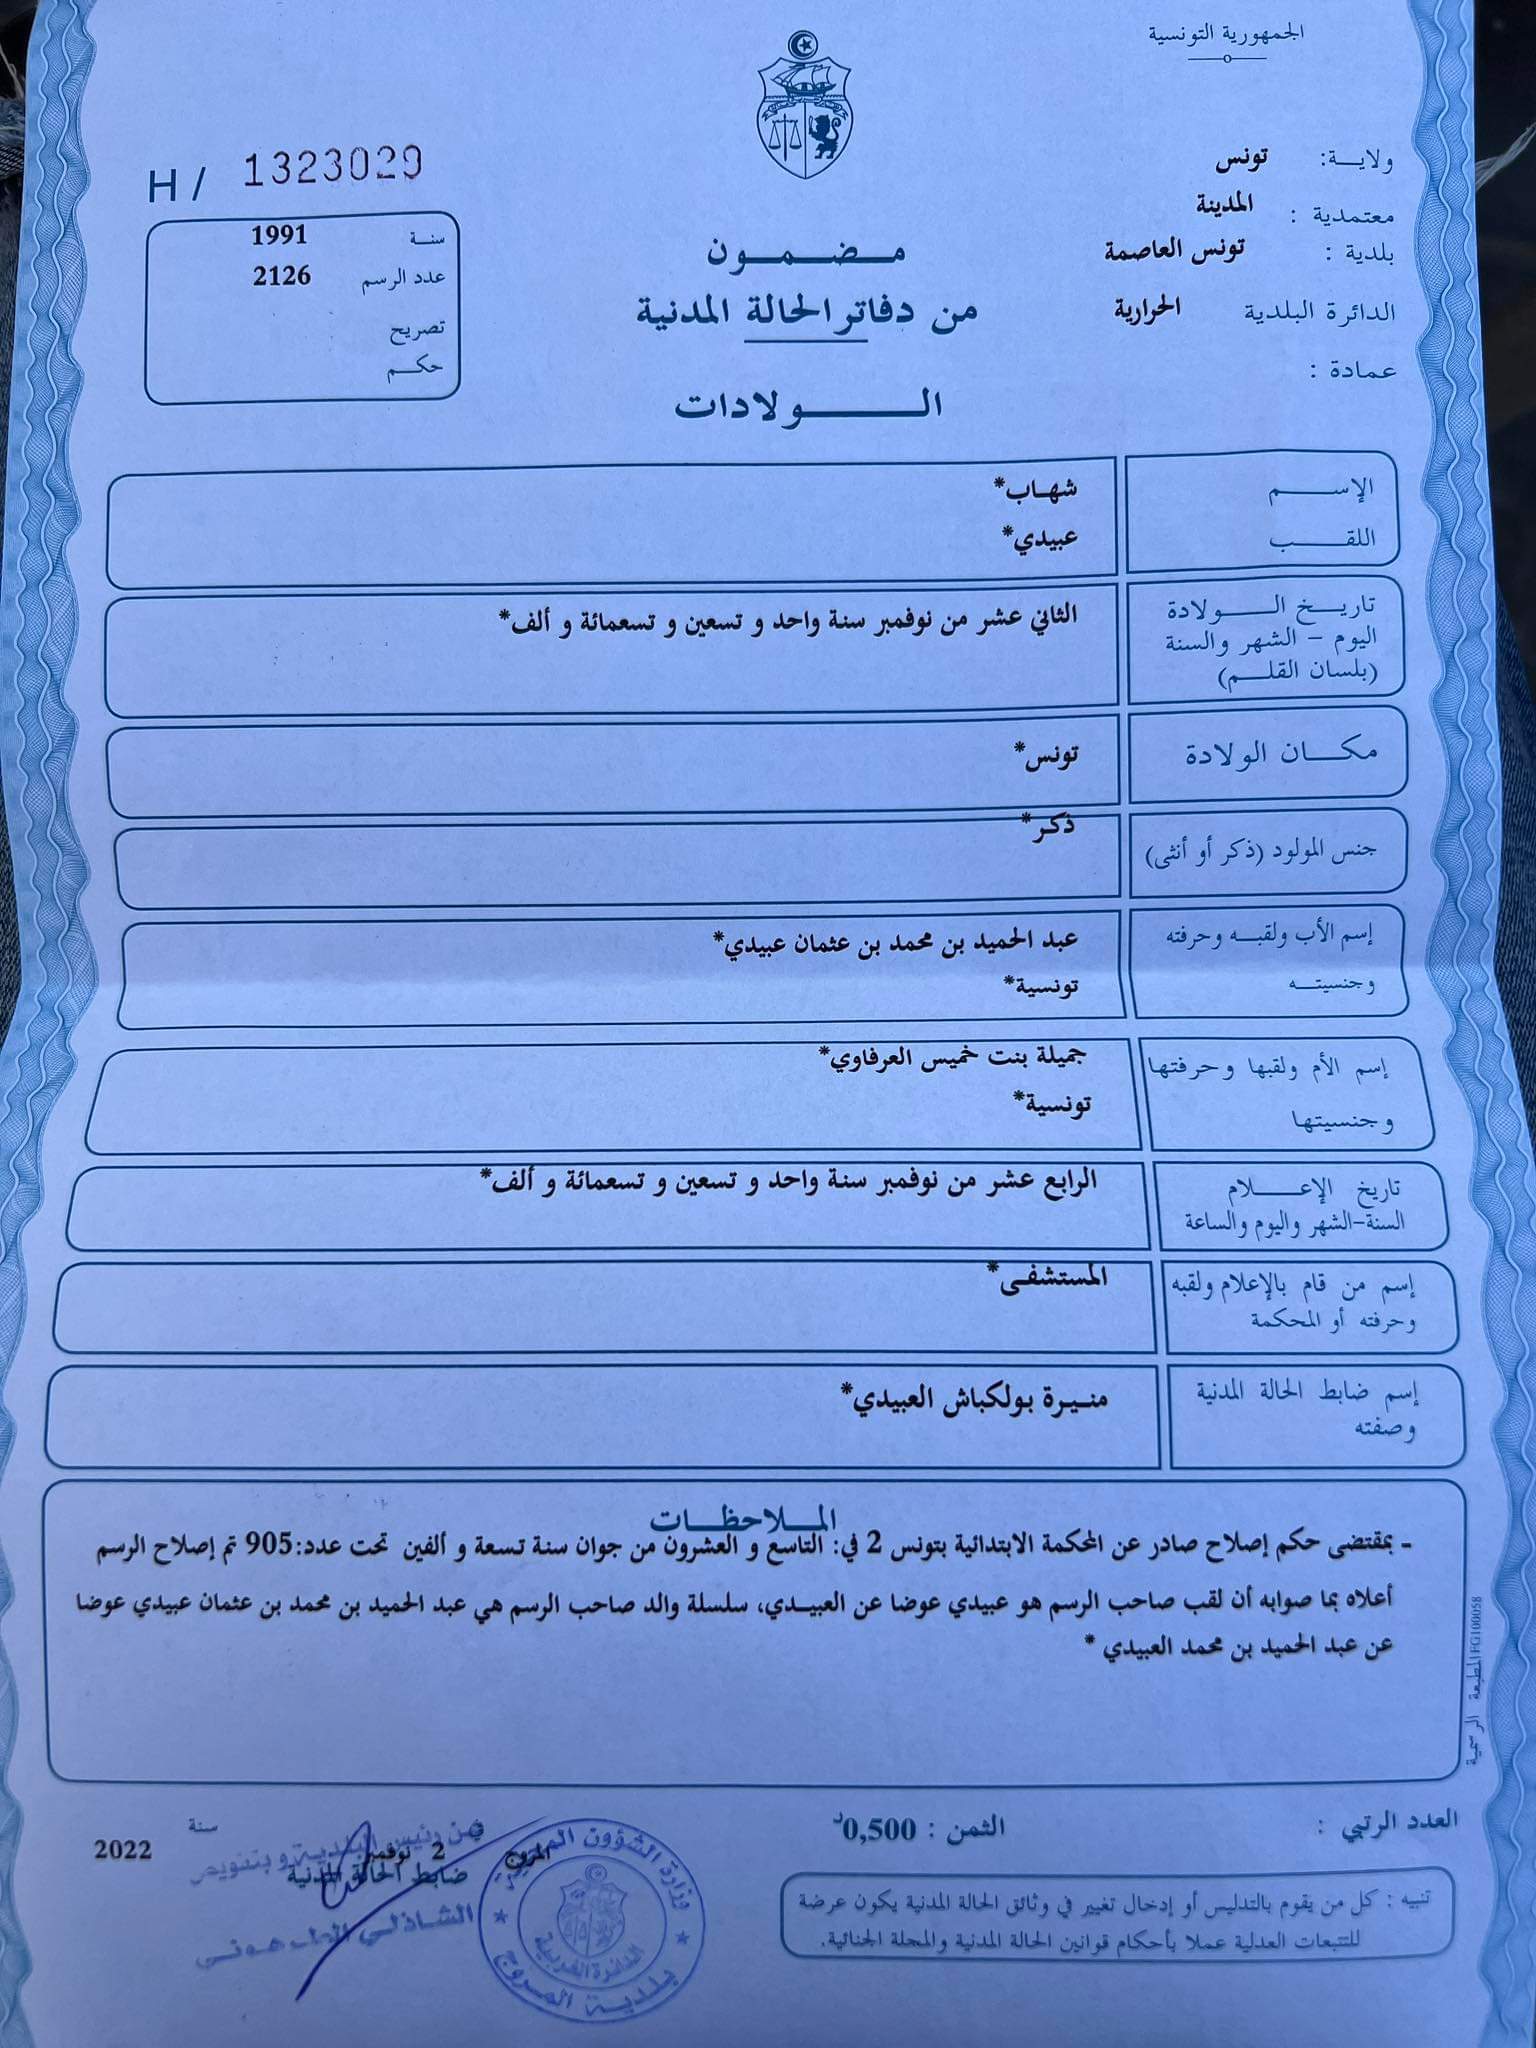 الجمهورية التونسية
ولاية: تونس
معتمدية : المدينة
بلدية : تونس العاصمة
الدائرة البلدية الحرارية
عمادة :
H / 1323029
سنة 1991
عدد الرسم 2126
تصريح
حكم
مضمون
من دفاتر الحالة المدنية
الولادات
الإسم شهاب*
اللقب عبيدي*
تاريخ الولادة
اليوم - الشهر والسنة
(بلسان القلم)
الثاني عشر من نوفمبر سنة واحد و تسعين و تسعمائة و ألف*
مكان الولادة تونس*
جنس المولود (ذكر أو أنثى) ذكر*
إسم الأب ولقبه وحرفته عبد الحميد بن محمد بن عثمان عبيدي*
وجنسيته تونسية*
إسم الأم ولقبها وحرفتها جميلة بنت خميس العرفاوي*
وجنسيتها تونسية*
تاريخ الإعلام الرابع عشر من نوفمبر سنة واحد و تسعين و تسعمائة و ألف*
السنة-الشهر واليوم والساعة
إسم من قام بالإعلام ولقبه المستشفى*
وحرفته أو المحكمة
إسم ضابط الحالة المدنية منيرة بولكباش العبيدي*
وصفته
الملاحظات
- بمقتضى حكم إصلاح صادر عن المحكمة الابتدائية بتونس 2 في: التاسع و العشرون من جوان سنة تسعة و ألفين تحت عدد:905 تم إصلاح الرسم
أعلاه بما صوابه أن لقب صاحب الرسم هو عبيدي عوضا عن العبيدي، سلسلة والد صاحب الرسم هي عبد الحميد بن محمد بن عثمان عبيدي عوضا
عن عبد الحميد بن محمد العبيدي *
المطبعة الرسمية FG100058
العدد الرتبي :
الثمن : 0,500د
المروج في 2 نوفمبر سنة 2022
ضابط الحالة المدنية
عن رئيس البلدية و بتفويض
الشاذلي
وزارة الشؤون المحلية
الدائرة الغربية
بلدية المروج
تنبيه : كل من يقوم بالتدليس أو إدخال تغيير في وثائق الحالة المدنية يكون عرضة
للتتبعات العدلية عملا بأحكام قوانين الحالة المدنية والمجلة الجنائية.